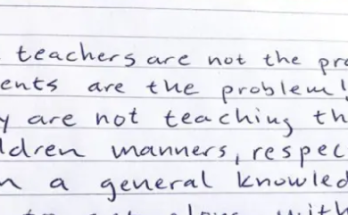 teachers are not the pro
ents are the problem!
y are not teaching th
ldren manners, respec
n a general knowled